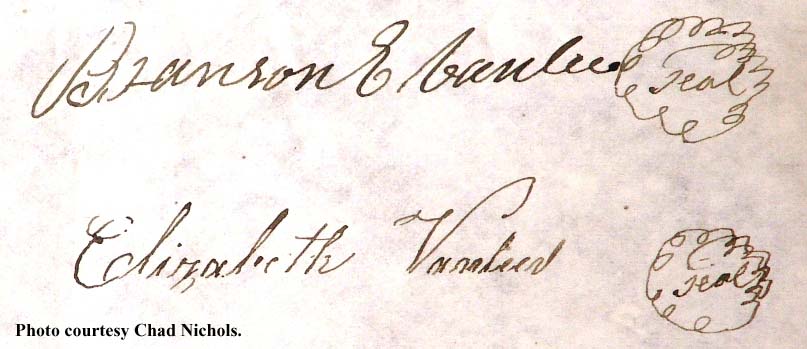 Branson E Vanleer Seal
Elizabeth Vanleer Seal
Photo courtesy Chad Nichols.